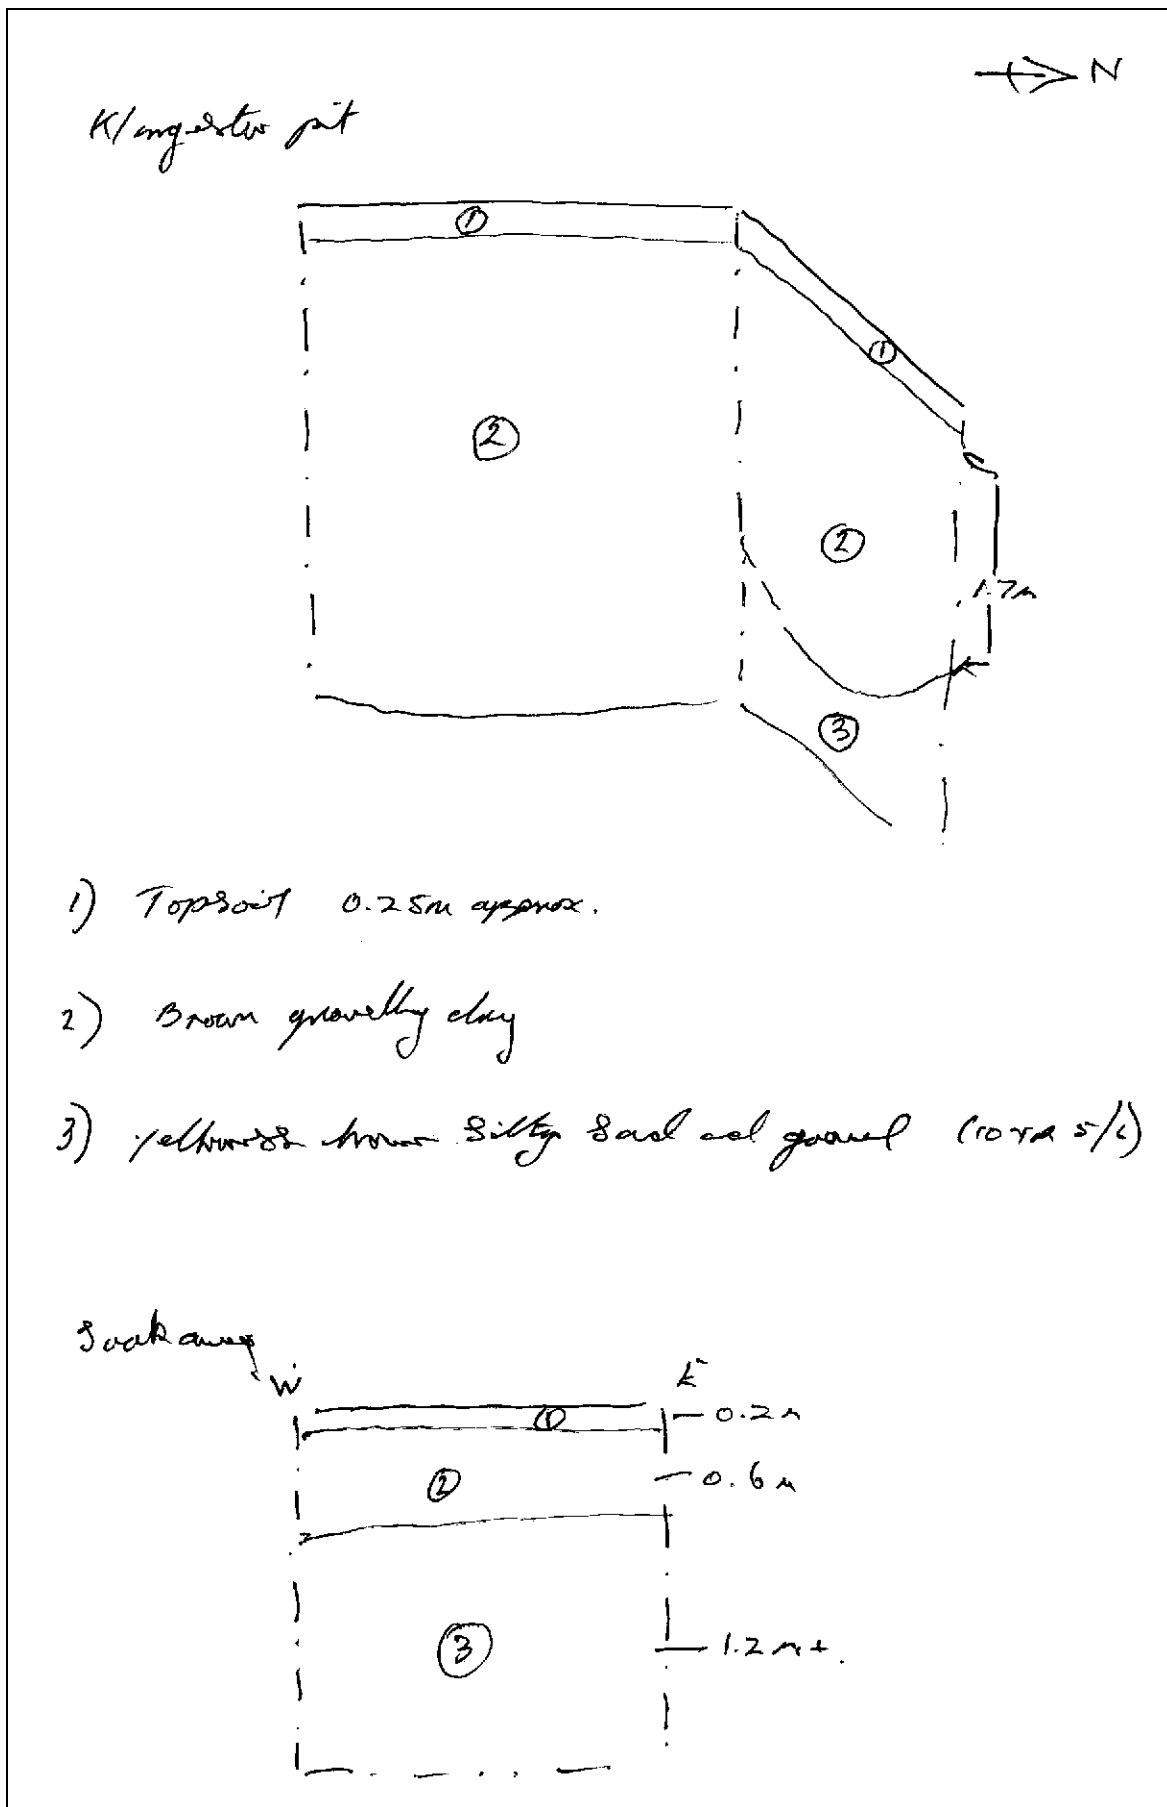 N
Klargester pit
①
①
②
②
1.7m
③
1) Topsoil 0.25m approx.
2) Brown gravelly clay
3) Yellowish brown silty sand and gravel (10YR 5/6)
Soakaway
W E
① 0.2m
② 0.6m
③ 1.2m+.